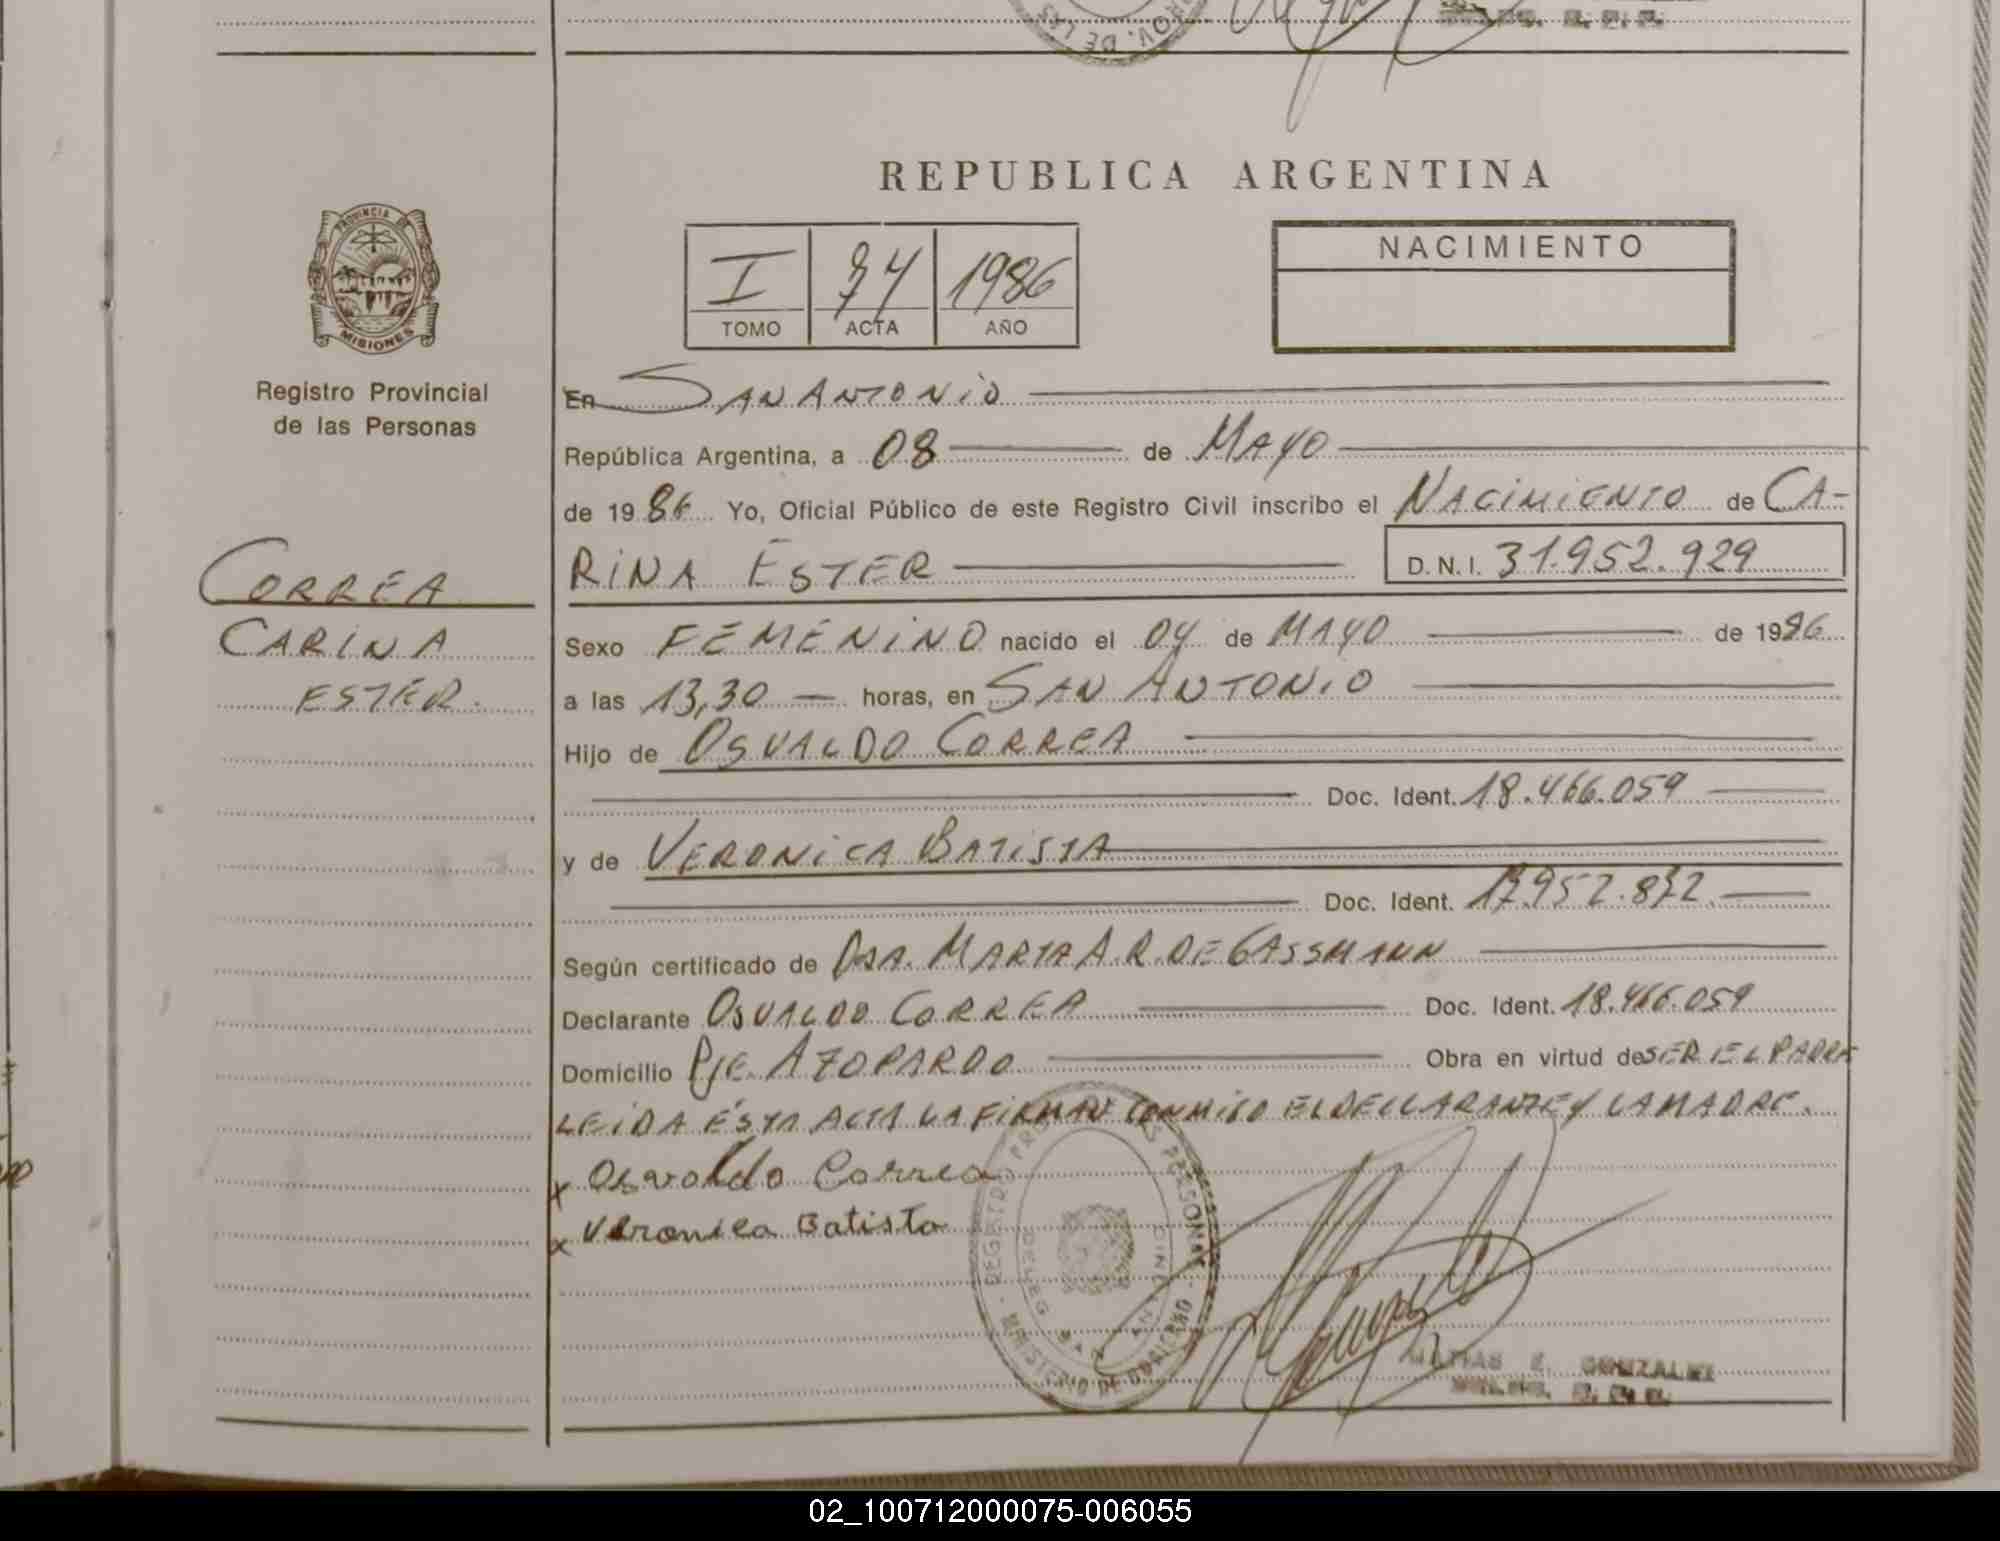 PROV. DE LAS
REPUBLICA ARGENTINA
PROVINCIA DE
MISIONES
Registro Provincial
de las Personas
I 74 1986
TOMO ACTA AÑO
NACIMIENTO
En SAN ANTONIO
República Argentina, a 08 de MAYO
de 1986 Yo, Oficial Público de este Registro Civil inscribo el NACIMIENTO de CA-
RINA ESTER D.N.I. 31.952.929
CORREA
CARINA
ESTER.
Sexo FEMENINO nacido el 04 de MAYO de 1986
a las 13,30 horas, en SAN ANTONIO
Hijo de OSVALDO CORREA
Doc. Ident. 18.466.059
y de VERONICA BATISTA
Doc. Ident. 17.952.872
Según certificado de DRA. MARTA A.R. DE GASSMANN
Declarante OSVALDO CORREA Doc. Ident. 18.466.059
Domicilio PJE. AZOPARDO Obra en virtud de SER EL PADRE
LEIDA ÉSTA ACTA LA FIRMAN CONMIGO EL DECLARANTE Y LA MADRE.
x Osvaldo Correa
x Veronica Batista
MATIAS E. GONZALEZ
02_100712000075-006055